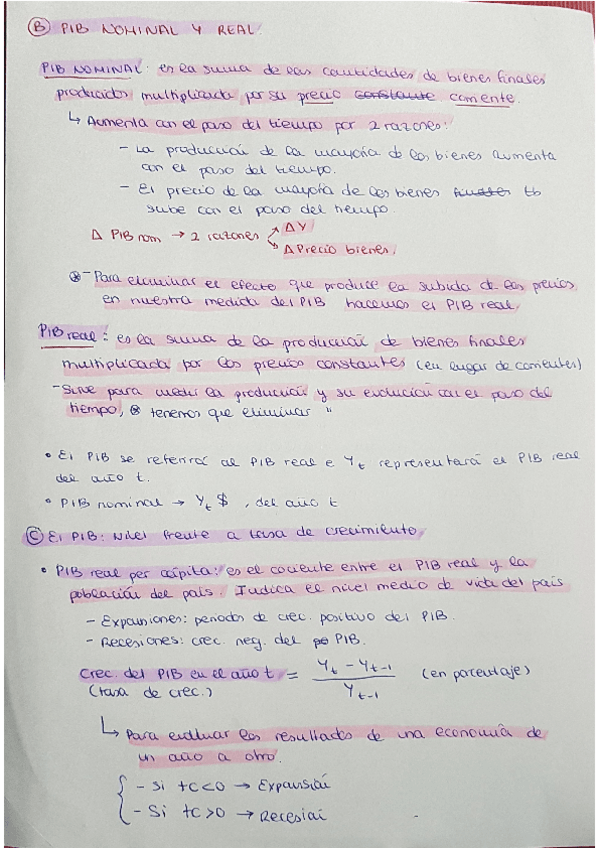 Ⓑ PIB NOMINAL Y REAL
PIB NOMINAL: es la suma de las cantidades de bienes finales
producidos multiplicada por su precio constante corriente.
↳ Aumenta con el paso del tiempo por 2 razones:
- La producción de la mayoría de los bienes aumenta
con el paso del tiempo.
- El precio de la mayoría de los bienes tb
sube con el paso del tiempo.
Δ PIB nom → 2 razones → ΔY
↘ Δ Precio bienes.
⊛ - Para eliminar el efecto que produce la subida de los precios
en nuestra medida del PIB hacemos el PIB real.
PIB real: es la suma de la producción de bienes finales
multiplicada por los precios constantes (en lugar de corrientes)
- Sirve para medir la producción y su evolución con el paso del
tiempo, ⊛ tenemos que eliminar "
• El PIB se referirá al PIB real e Yt representará el PIB real
del año t.
• PIB nominal → Yt $, del año t
Ⓒ El PIB: Nivel frente a tasa de crecimiento
• PIB real per cápita: es el cociente entre el PIB real y la
población del país. Indica el nivel medio de vida del país
- Expansiones: periodos de crec. positivo del PIB.
- Recesiones: crec. neg. del PIB.
Crec. del PIB en el año t = (Yt - Yt-1) / Yt-1 (en porcentaje)
(tasa de crec.)
↳ Para evaluar los resultados de una economía de
un año a otro.
{ - Si tc<0 → Expansión
- Si tc>0 → Recesión